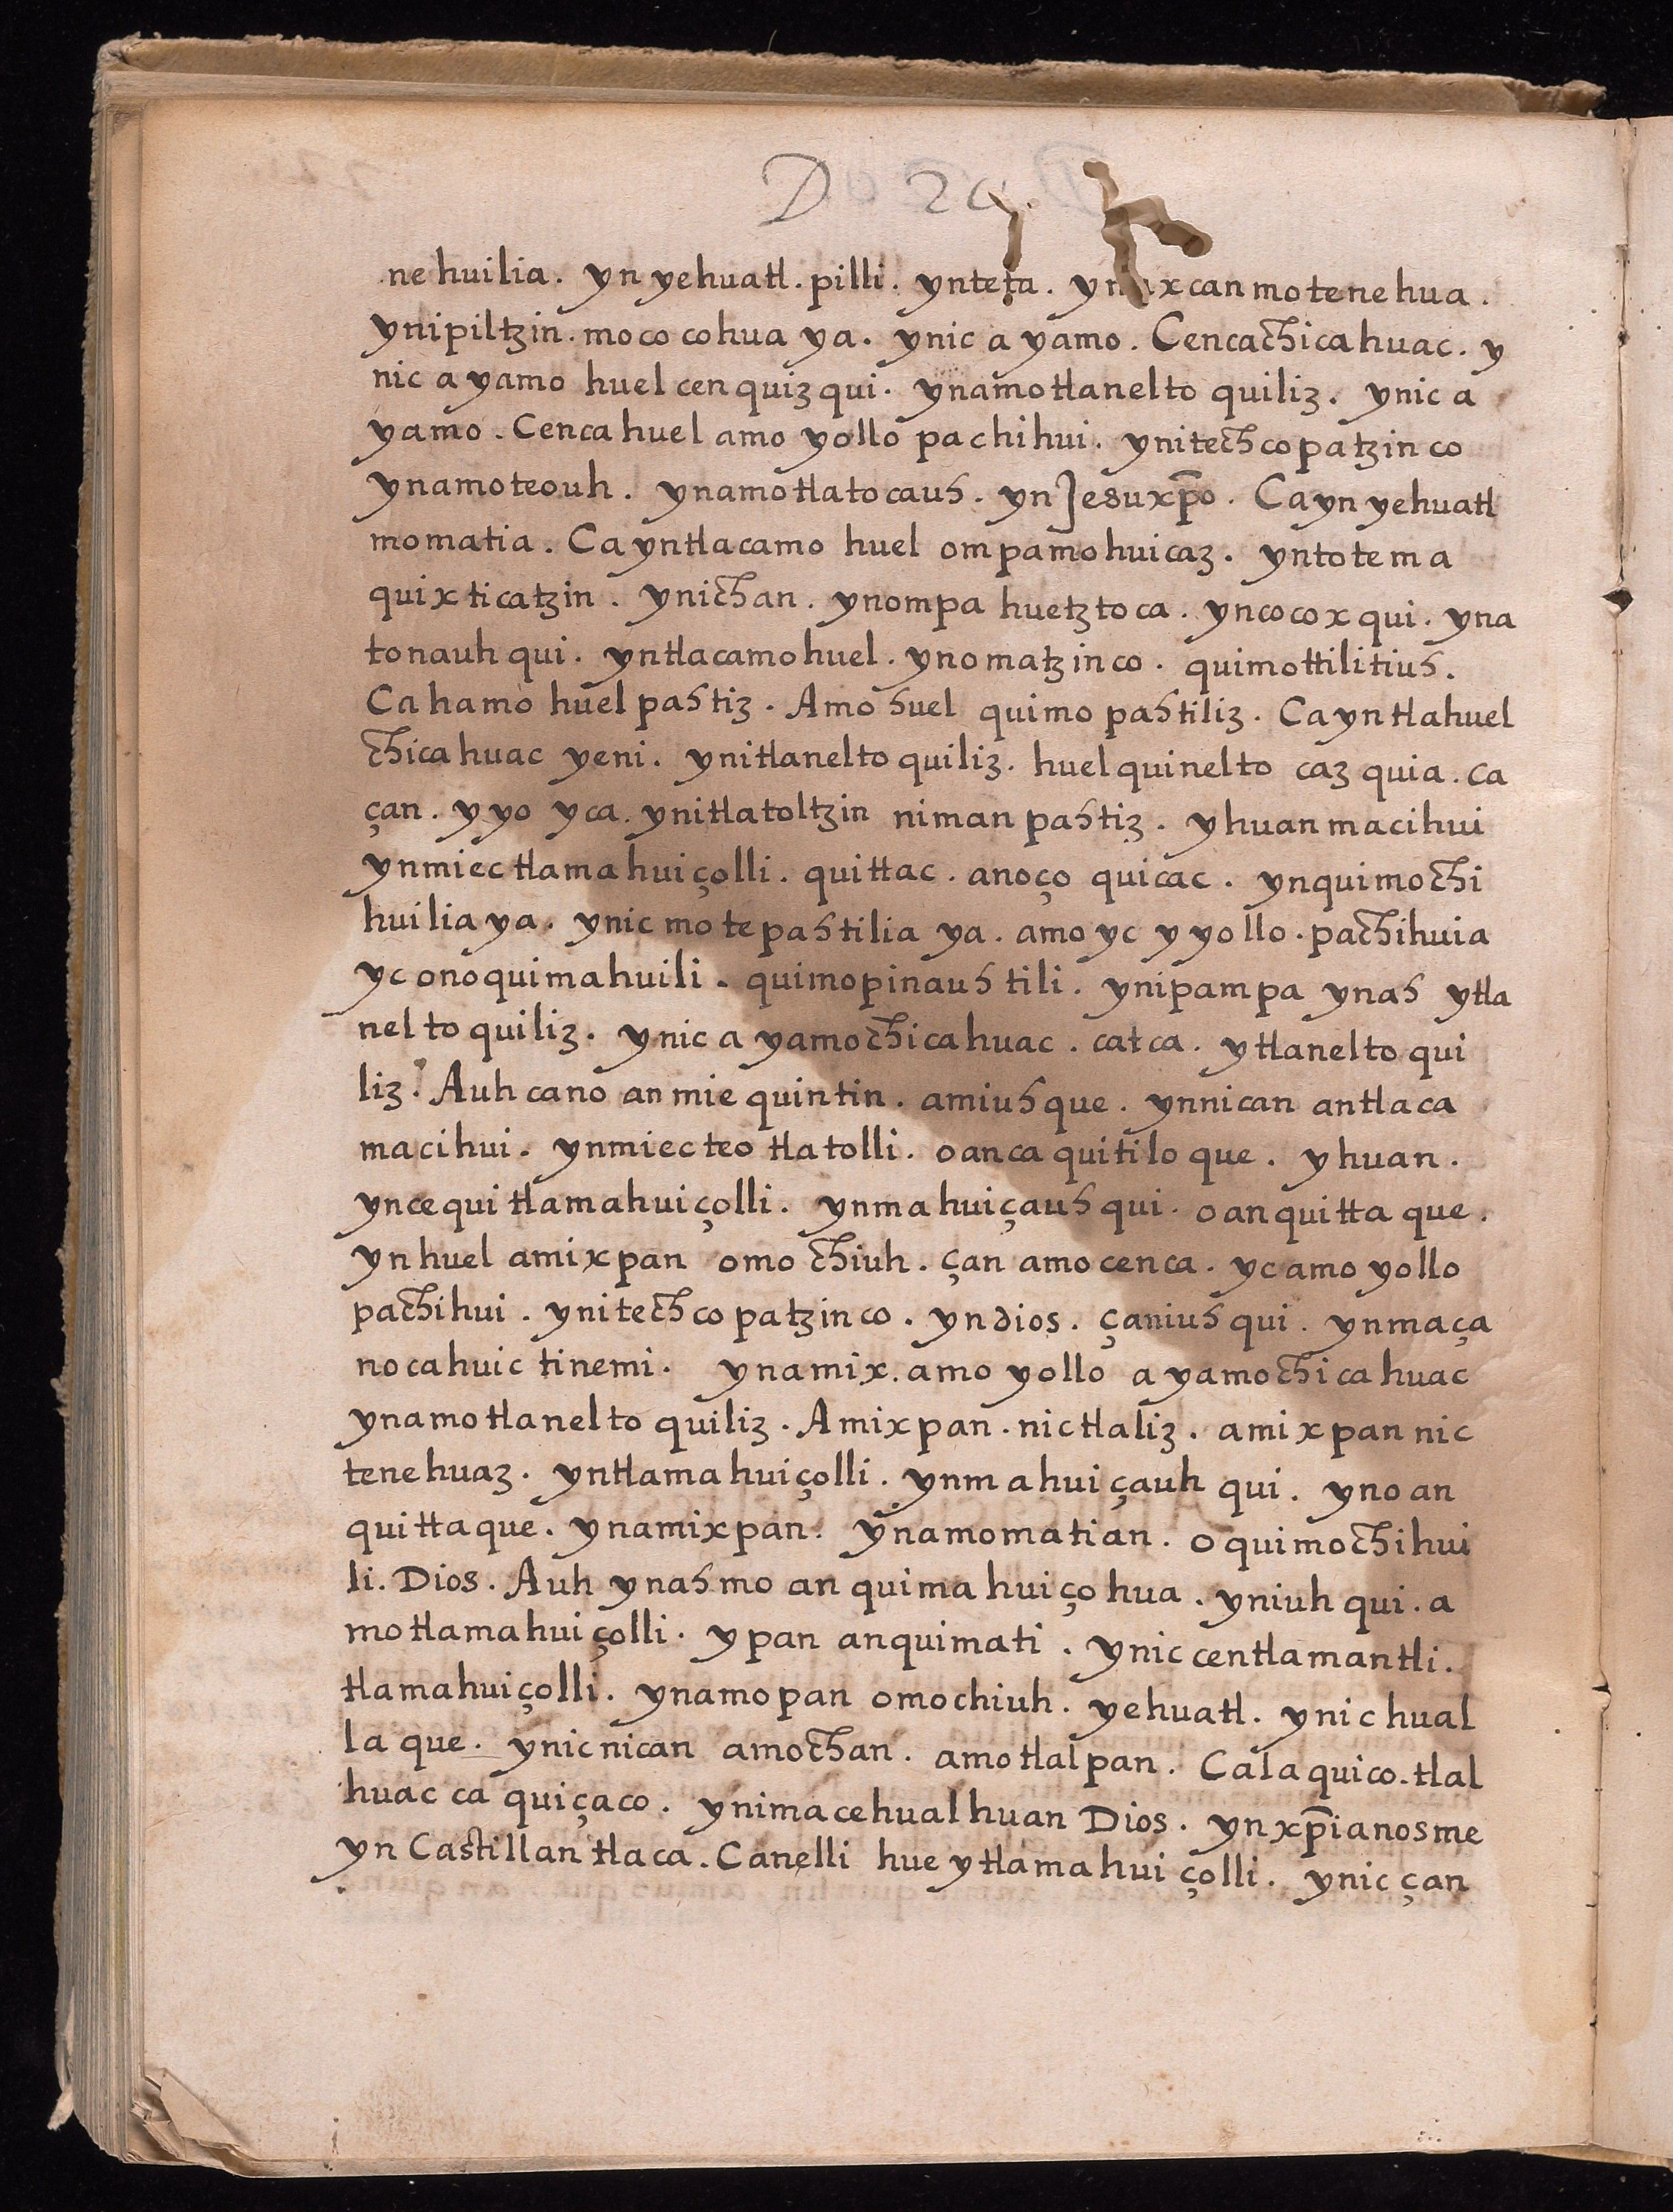 D 24.
nehuilia. yn yehuatl. pilli. ynteta. yn axcan motenehua.
ynipiltzin. mococohua ya. ynic a yamo. Cencachicahuac. y
nic a yamo huel cenquizqui. ynamotlaneltoquiliz. ynic a
yamo. Cencahuel amo yollo pachihui. ynitechcopatzinco
ynamoteouh. ynamotlatocauh. yn Jesuxp̄o. Cayn yehuatl
momatia. Ca yntlacamo huel ompamohuicaz. yntotema
quixticatzin. ynichan. ynompa huetztoca. yncocoxqui. yna
tonauhqui. yntlacamohuel. ynomatzinco. quimottilitiuh.
Ca hamo huel pahtiz. Amo huel quimo pahtiliz. Cayn tlahuel
chicahuac yeni. ynitlaneltoquiliz. huelquineltocazquia. ca
çan. y yo yca. ynitlatoltzin niman pahtiz. yhuan macihui
ynmiec tlamahuiçolli. quittac. anoço quicac. ynquimochi
huilia ya. ynic motepahtilia ya. amo yc y yollo. pachihuia
yc onoquimahuili. quimopinauhtili. ynipampa ynah ytla
neltoquiliz. ynic a yamochicahuac. catca. ytlaneltoqui
liz. Auh cano anmiequintin. amiuhque. ynnican antlaca
macihui. ynmiec teotlatolli. oancaquitiloque. yhuan.
yncequi tlamahuiçolli. ynmahuiçauhqui. oanquittaque.
ynhuel amixpan omochiuh. çan amocenca. yc amo yollo
pachihui. ynitechcopatzinco. yn dios. çaniuhqui. ynmaça
nocahuic tinemi. ynamix. amo yollo a yamochicahuac
ynamotlaneltoquiliz. Amixpan. nictlaliz. amixpan nic
tenehuaz. yntlamahuiçolli. ynmahuiçauhqui. ynoan
quittaque. ynamixpan. ynamomatian. oquimochihui
li. Dios. Auh ynahmo anquimahuiçohua. yniuhqui. a
motlamahuiçolli. ypan anquimati. ynic centlamantli.
tlamahuiçolli. ynamopan omochiuh. yehuatl. ynic hual
laque. ynicnican amochan. amotlalpan. Calaquico. tlal
huac ca quiçaco. ynimacehualhuan Dios. ynxp̄ianosme
yn Castillan tlaca. Canelli huey tlamahuiçolli. ynic çan